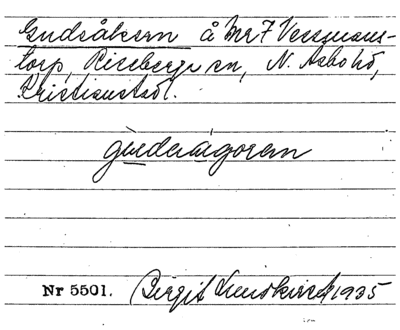 Gudsåkern å Nr 7 Vessmans-
torp, Riseberga sn, N. Åsbo hd,
Kristianstad l.
gudsågoren
Nr 5501. Birgit 1935